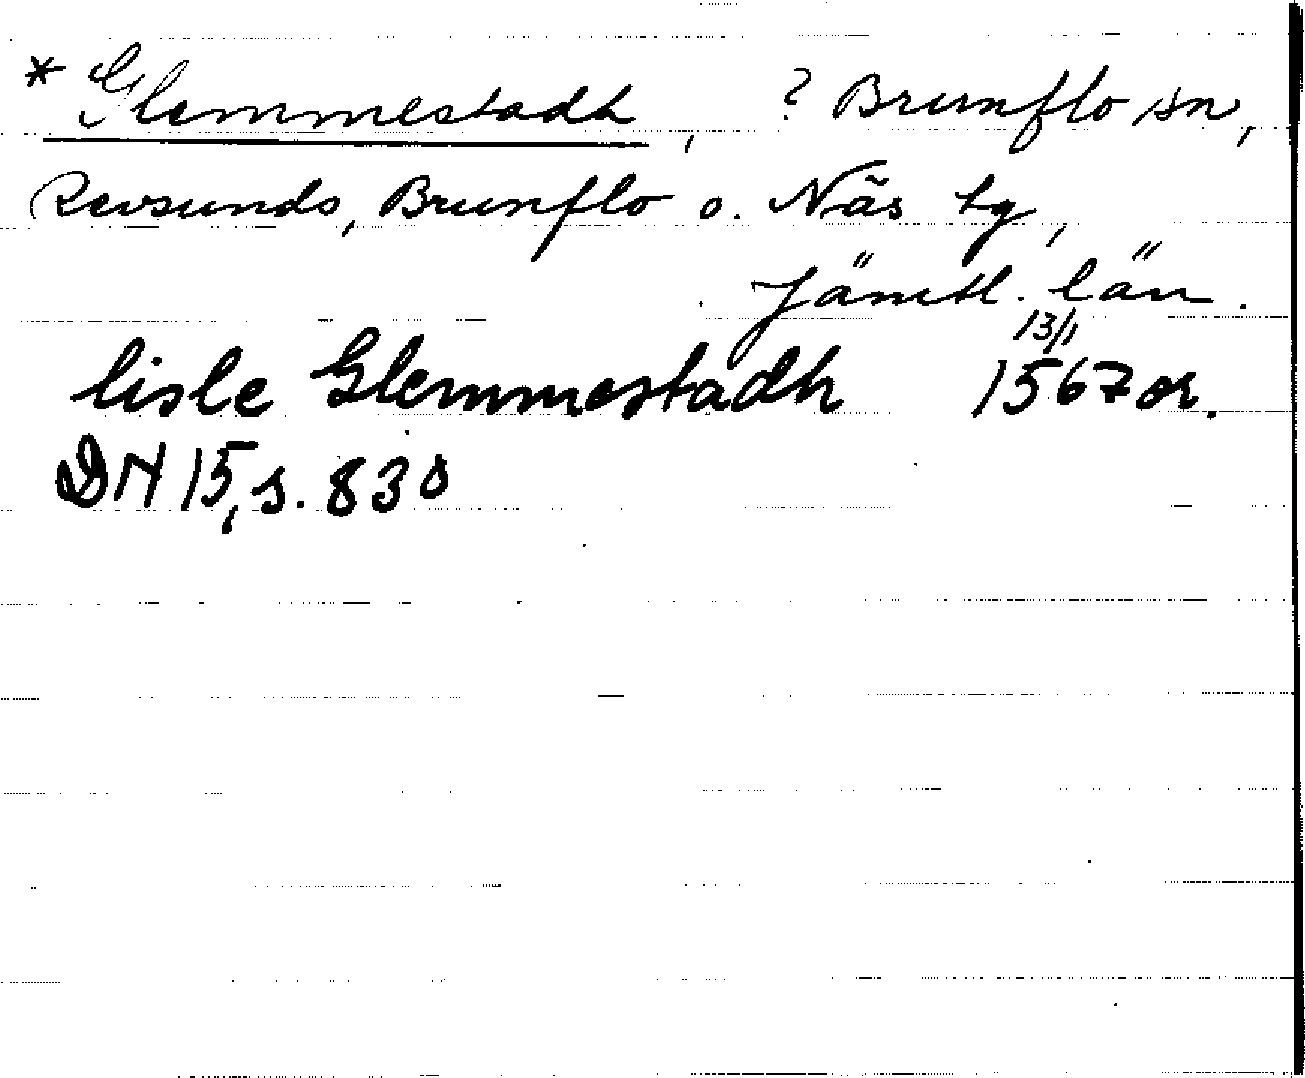 * Glemmestadh, ? Brunflo sn,
Revsunds, Brunflo o. Näs tg,
Jämtl. län.
lisle Glemmestadh 13/1 1567 or.
DN 15, s. 830